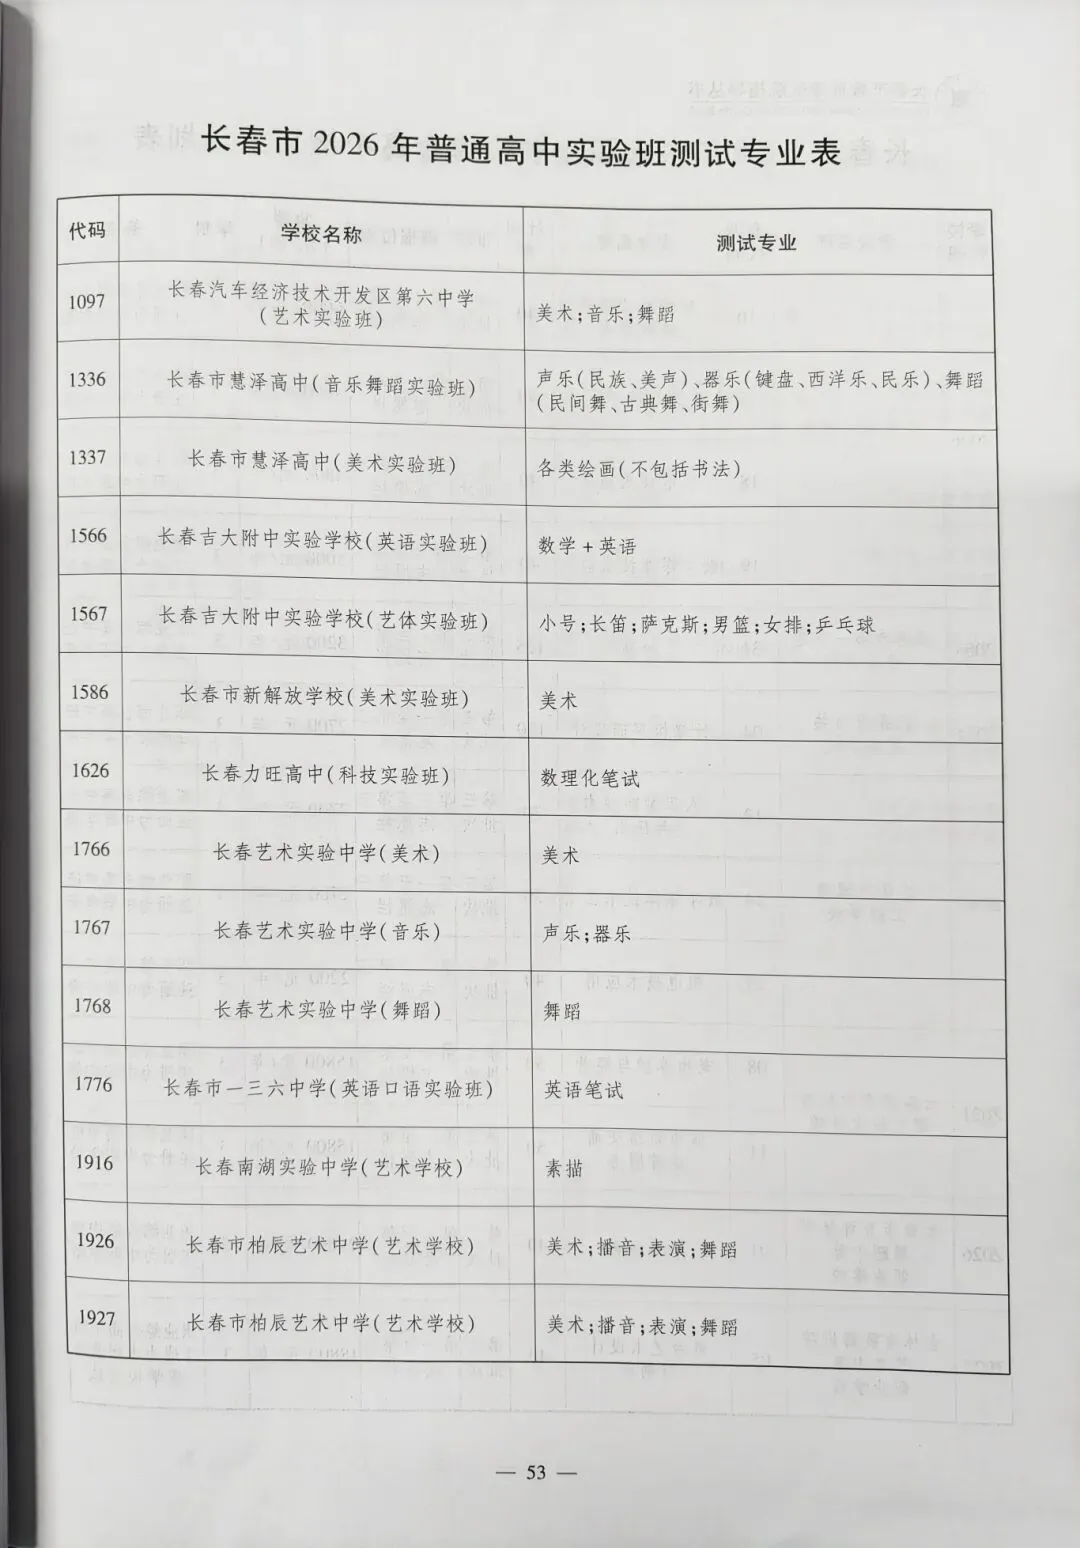 长春市 2026 年普通高中实验班测试专业表
代码 学校名称 测试专业
1097 长春汽车经济技术开发区第六中学
(艺术实验班) 美术;音乐;舞蹈
1336 长春市慧泽高中(音乐舞蹈实验班) 声乐(民族、美声)、器乐(键盘、西洋乐、民乐)、舞蹈
(民间舞、古典舞、街舞)
1337 长春市慧泽高中(美术实验班) 各类绘画(不包括书法)
1566 长春吉大附中实验学校(英语实验班) 数学+英语
1567 长春吉大附中实验学校(艺体实验班) 小号;长笛;萨克斯;男篮;女排;乒乓球
1586 长春市新解放学校(美术实验班) 美术
1626 长春力旺高中(科技实验班) 数理化笔试
1766 长春艺术实验中学(美术) 美术
1767 长春艺术实验中学(音乐) 声乐;器乐
1768 长春艺术实验中学(舞蹈) 舞蹈
1776 长春市一三六中学(英语口语实验班) 英语笔试
1916 长春南湖实验中学(艺术学校) 素描
1926 长春市柏辰艺术中学(艺术学校) 美术;播音;表演;舞蹈
1927 长春市柏辰艺术中学(艺术学校) 美术;播音;表演;舞蹈
— 53 —